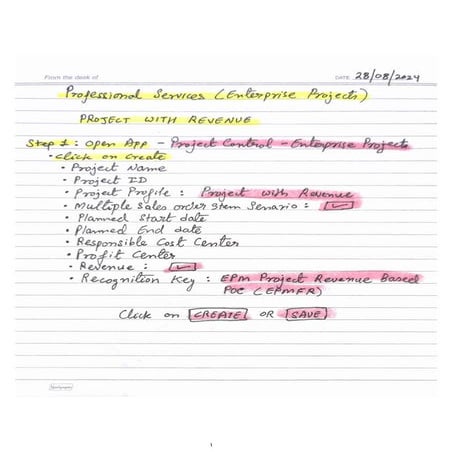 From the desk of
DATE 28/08/2024
Professional Services (Enterprise Projects)
PROJECT WITH REVENUE
Step 1: Open App - Project Control - Enterprise Projects
• Click on Create
• Project Name
• Project ID
• Project Profile : Project with Revenue
• Multiple Sales order Item Senario : ✓
• Planned Start date
• Planned End date
• Responsible Cost Center
• Profit Center
• Revenue : ✓
• Recognition Key : EPM Project Revenue Based
POC (EPMFR)
Click on CREATE OR SAVE
1